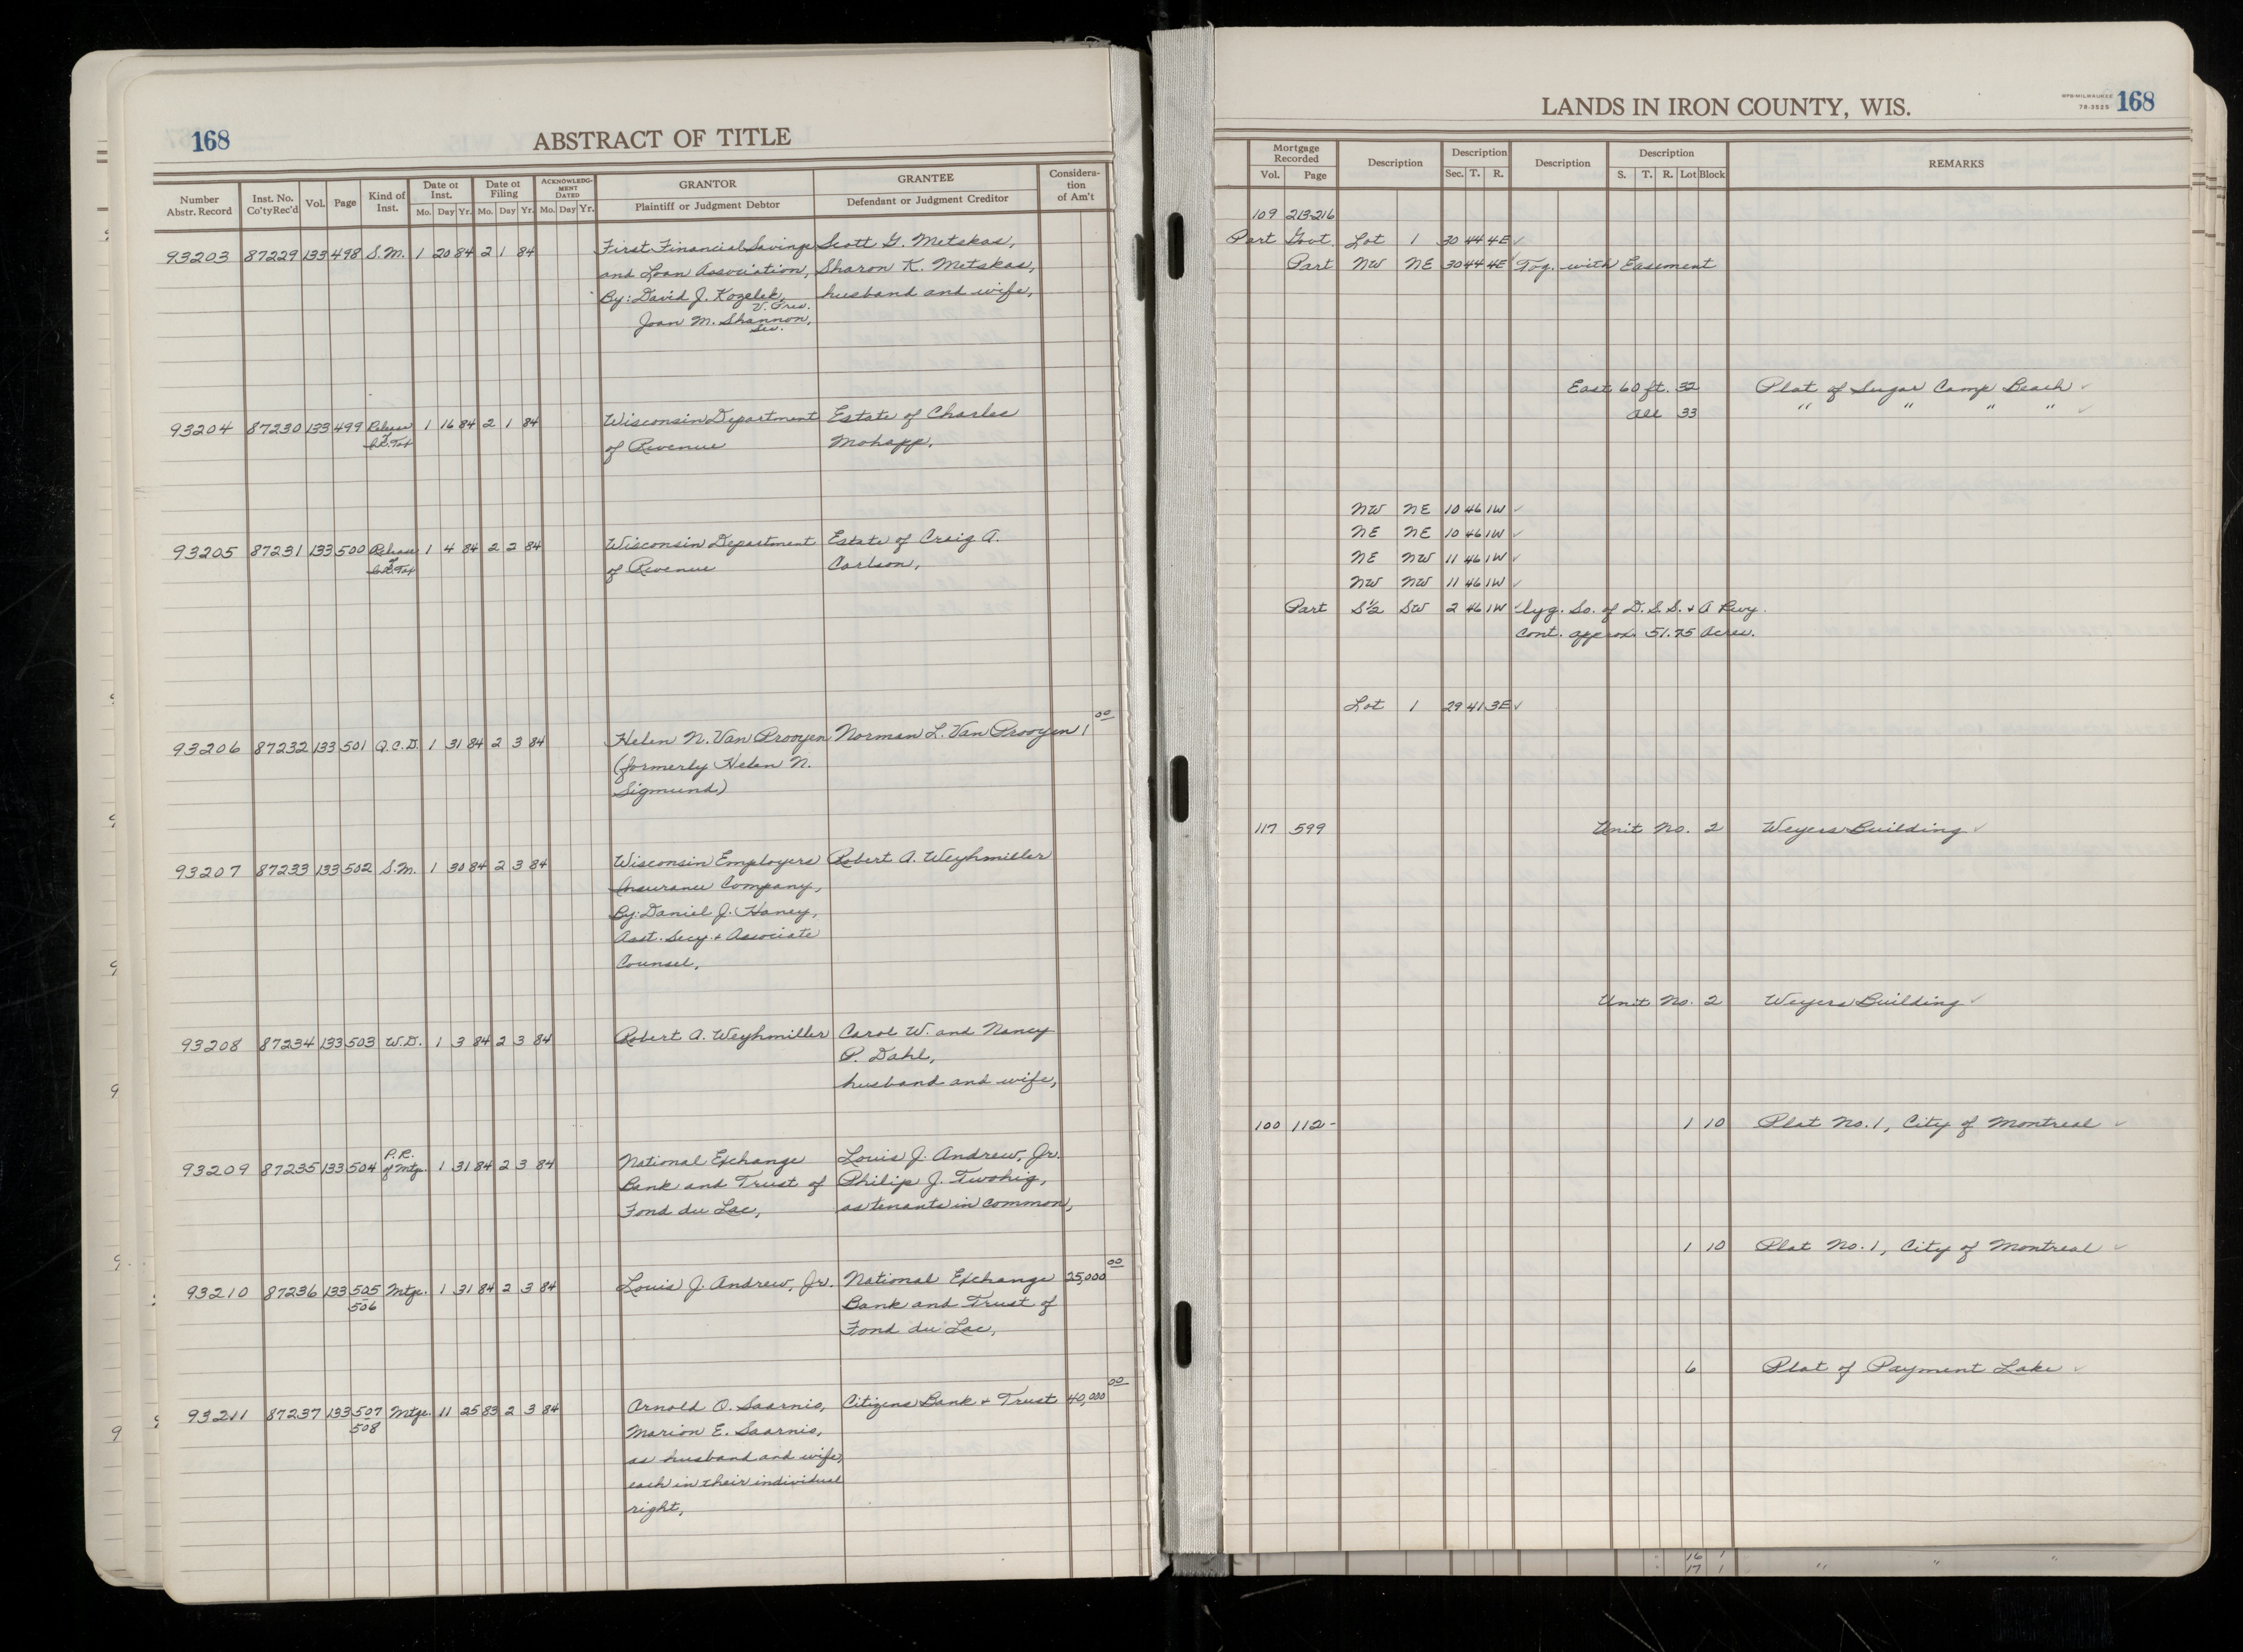 168
ABSTRACT OF TITLE
Number Abstr. Record | Inst. No. Co'tyRec'd | Vol. | Page | Kind of Inst. | Date of Inst. Mo. Day Yr. | Date of Filing Mo. Day Yr. | ACKNOWLEDGMENT DATED Mo. Day Yr. | GRANTOR Plaintiff or Judgment Debtor | GRANTEE Defendant or Judgment Creditor | Consideration of Am't
93203 87229 133 498 S.M. 1 20 84 2 1 84 First Financial Savings Scott G. Metskas,
and Loan Association, Sharon K. Metskas,
By: David J. Kozelek, husband and wife,
V. Pres.
Joan M. Shannon,
Sec.
93204 87230 133 499 Release 1 16 84 2 1 84 Wisconsin Department Estate of Charles
of Revenue Mohapp,
93205 87231 133 500 Release 1 4 84 2 2 84 Wisconsin Department Estate of Craig A.
of Revenue Carlson,
93206 87232 133 501 Q.C.D. 1 31 84 2 3 84 Helen N. Van Prooyen Norman L. Van Prooyen 1 00
(formerly Helen N.
Sigmund)
93207 87233 133 502 S.M. 1 30 84 2 3 84 Wisconsin Employers Robert A. Weyhmiller
Insurance Company,
By: Daniel J. Haney,
Asst. Secy. + Associate
Counsel,
93208 87234 133 503 W.D. 1 3 84 2 3 84 Robert A. Weyhmiller Carol W. and Nancy
P. Dahl,
husband and wife,
93209 87235 133 504 P.R. of Mtge. 1 31 84 2 3 84 National Exchange Louis J. Andrew, Jr.
Bank and Trust of Philip J. Twohig,
Fond du Lac, as tenants in common,
93210 87236 133 505 Mtge. 1 31 84 2 3 84 Louis J. Andrew, Jr. National Exchange 25,000 00
506 Bank and Trust of
Fond du Lac,
93211 87237 133 507 Mtge. 11 25 83 2 3 84 Arnold O. Saarnio, Citizens Bank + Trust 40,000 00
508 Marion E. Saarnio,
as husband and wife,
each in their individual
right,
LANDS IN IRON COUNTY, WIS.
BPB-MILWAUKEE
78-3525
168
Mortgage Recorded Vol. Page | Description | Description Sec. T. R. | Description | Description S. T. R. Lot Block | REMARKS
109 213-216
Part Govt. Lot 1 30 44 4E ✓
Part NW NE 30 44 4E ✓ Tog. with Easement
East 60 ft. 32 Plat of Sugar Camp Beach ✓
All 33 " " " " ✓
NW NE 10 46 1W ✓
NE NE 10 46 1W ✓
NE NW 11 46 1W ✓
NW NW 11 46 1W ✓
Part S½ SW 2 46 1W ✓ lyg. So. of D.S.S. + A Rwy.
Cont. approx. 51.75 Acres.
Lot 1 29 41 3E ✓
117 599 Unit No. 2 Weyers Building ✓
Unit No. 2 Weyers Building ✓
100 112- 1 10 Plat No. 1, City of Montreal ✓
1 10 Plat No. 1, City of Montreal ✓
6 Plat of Payment Lake ✓
16 1
17 1 " " "